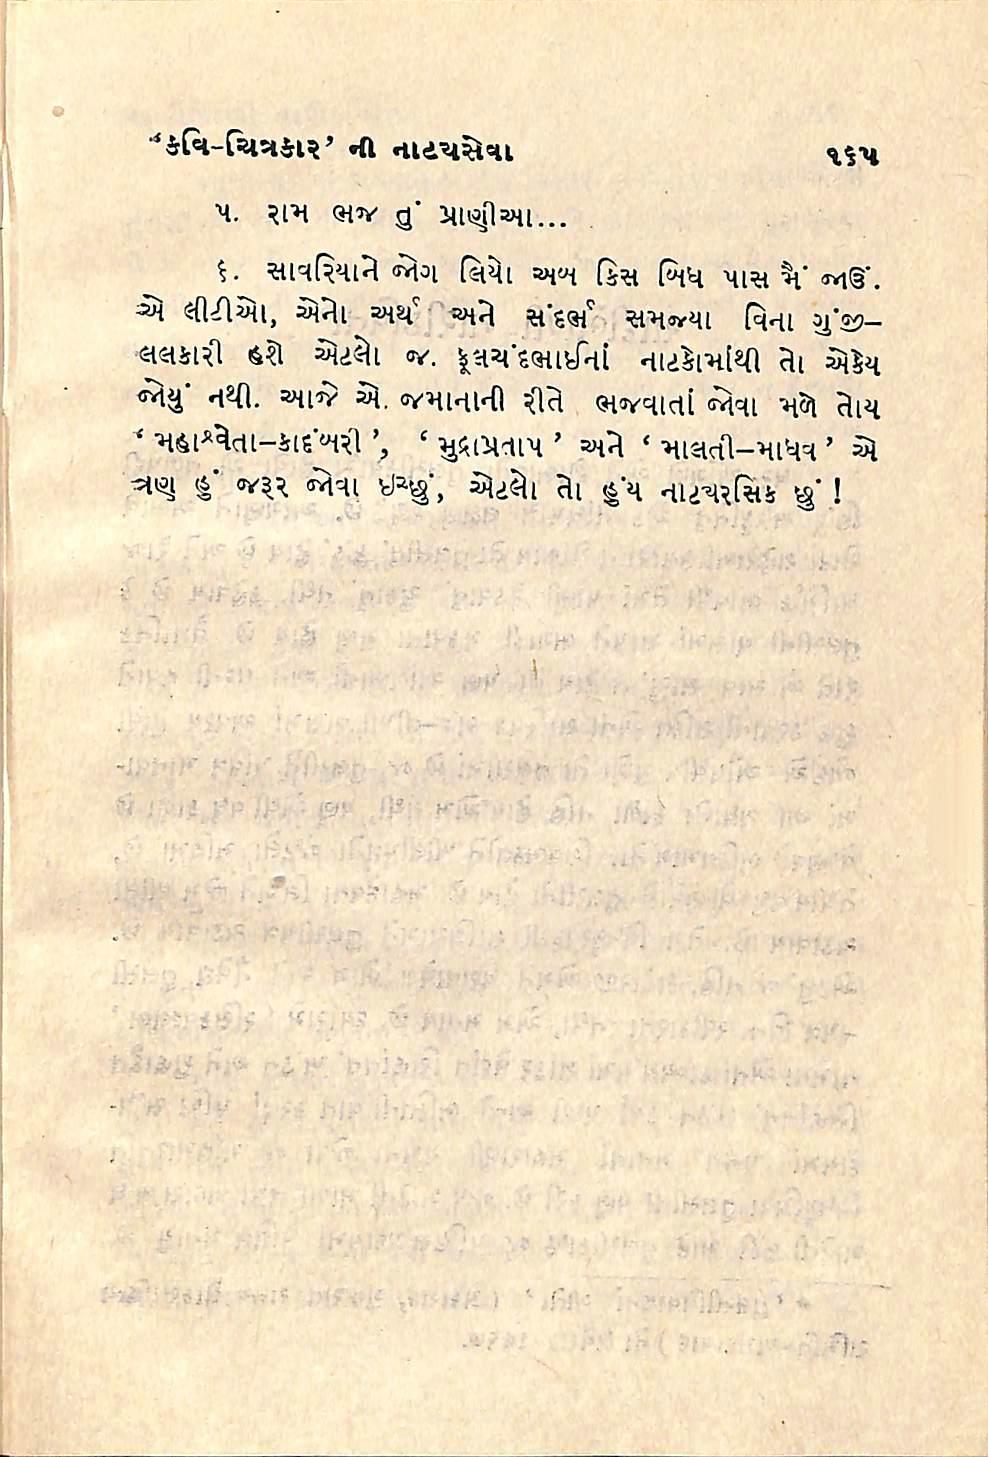 ‘કવિ-ચિત્રકાર’ ની નાટ્યસેવા ૧૬૫
૫. રામ ભજ તું પ્રાણીઆ...
૬. સાવરિયાને જોગ લિયો અબ કિસ બિધ પાસ મૈં જાઉં.
એ લીટીઓ, એનો અર્થ અને સંદર્ભ સમજ્યા વિના ગુંજી–
લલકારી હશે એટલો જ. ફૂલચંદભાઈનાં નાટકોમાંથી તો એકેય
જોયું નથી. આજે એ જમાનાની રીતે ભજવાતાં જોવા મળે તોય
‘મહાશ્વેતા–કાદંબરી’, ‘મુદ્રાપ્રતાપ’ અને ‘માલતી–માધવ’ એ
ત્રણ હું જરૂર જોવા ઇચ્છું, એટલો તો હુંય નાટ્યરસિક છું!